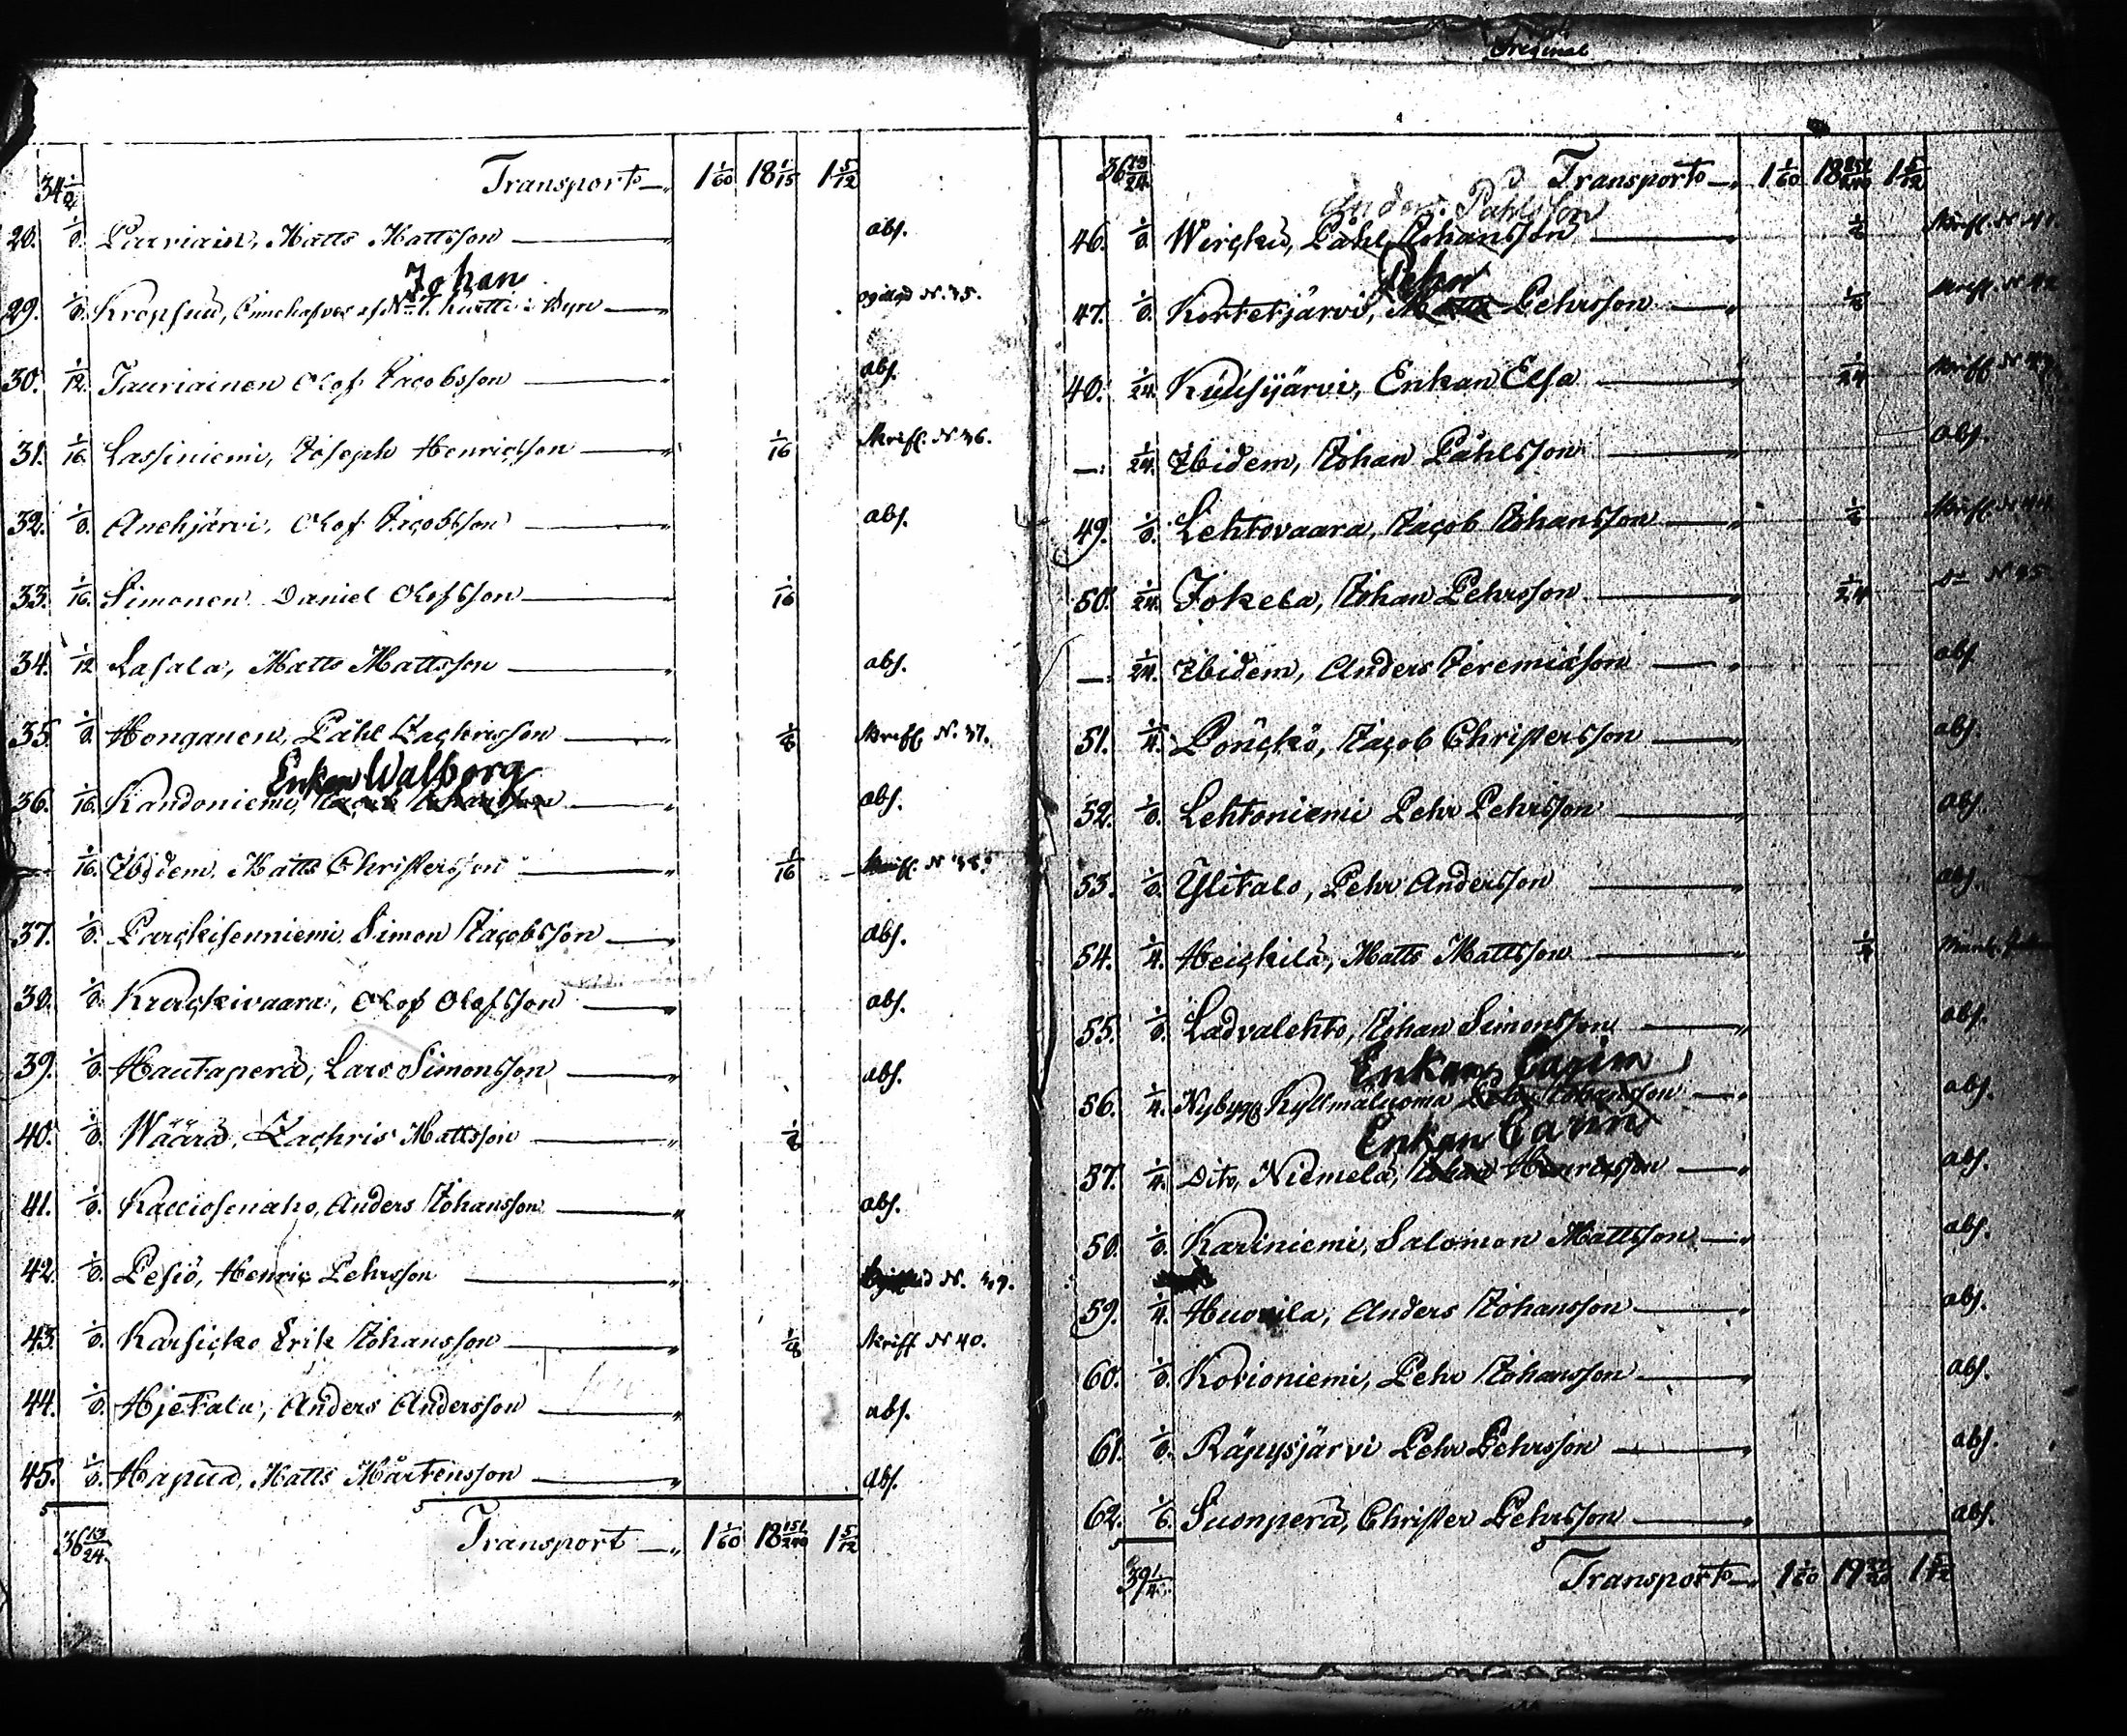 34 1/2 Transport 1 1/60 18 1/15 1 5/12
28. 1/8. Parviain, Matts Mattsson abs.
Johan
29. 1/8. Kropsu, i Byn ogillad N. 35.
30. 1/12. Tauriainen Olof Jacobsson abs.
31. 1/16. Lassiniemi, Joseph Henricsson 1/16 Skrifl. N. 36.
32. 1/8. Anehjärvi, Olof Jacobsson abs.
33. 1/16. Simonen Daniel Olofsson 1/16
34. 1/12 Lasala, Matts Mattsson abs.
35. 1/8. Honganen, Påhl Zachrisson 1/8 Skrifl. N. 37.
Enkan Walborg
36. 1/16. Kandoniemi, Jacob Johansson abs.
— 1/16. Ibidem, Matts Christersson 1/16 Skrifl. N 38.
37. 1/8. Parckisenniemi Simon Jacobsson abs.
38. 1/8. Kurckivaara, Olof Olofsson abs.
39. 1/8. Hautaperä, Lars Simonsson abs.
40. 1/8. Wäärä, Zachris Mattsson 1/8
41. 1/8. Kacciosenaho, Anders Johansson abs.
42. 1/8. Pesiö, Henric Pehrsson ogillad N. 39.
43. 1/8. Karsicko Erik Johansson 1/8 Skrifl N 40.
44. 1/8. Hjetala, Anders Andersson abs.
45. 1/8. Hapua, Matts Mårtensson abs.
36 13/24. Transport 1 1/60 18 151/240 1 5/12
Original
36 13/24. Transport 1 1/60 18 151/240 1 5/12
Anders Påhlsson
46. 1/8. Wircku, Påhl Johansson 1/8 Skrifl. N 41.
Pehr
47. 1/8. Kortetjärvi, Matts Pehrsson 1/8 Skrifl. N 42
48. 1/24. Kuusijärvi, Enkan Elsa 1/24 Skrifl N 43.
— 1/24. Ibidem, Johan Påhlsson abs.
49. 1/8. Lehtovaara, Jacob Johansson 1/8 Skrifl. N 44.
50. 1/24. Jokela, Johan Pehrsson 1/24 Do N 45.
— 1/24. Ibidem, Anders Jeremiäson abs.
51. 1/4. Pouckö, Jacob Christersson abs.
52. 1/8. Lehtoniemi Pehr Pehrsson abs.
53. 1/8. Ylitalo, Pehr Andersson abs.
54. 1/4. Heickilä, Matts Mattsson 1/4
55. 1/8. Ladvalehto, Johan Simonsson abs.
Enkan Carin
56. 1/4. Nybygg Kyllmäluoma Pehr Johansson abs.
Enkan Carin
57. 1/4. Dito, Niemelä, Johan Henricsson abs.
58. 1/8. Kariniemi, Salomon Mattsson abs.
59. 1/4. Huovila, Anders Johansson abs.
60. 1/8. Kovioniemi, Pehr Johansson abs.
61. 1/8. Räpysjärvi Pehr Pehrsson abs.
62. 1/6. Suonperä, Christer Pehrsson abs.
39 1/4. Transport 1 1/60 19 1 5/12